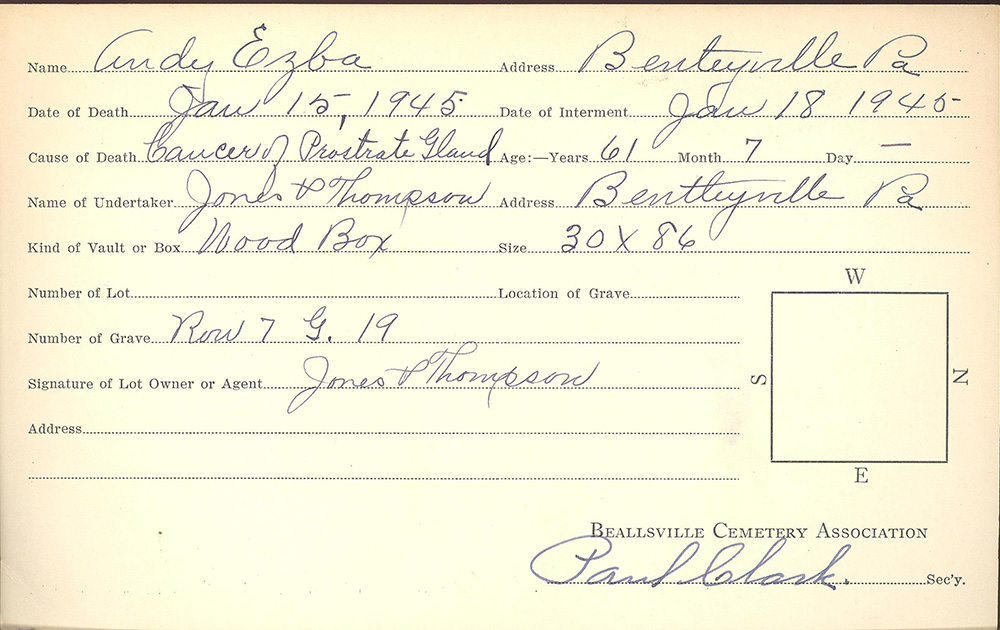 Name Andy Ezba Address Benteyville Pa
Date of Death Jan 15, 1945 Date of Interment Jan 18 1945
Cause of Death Cancer of Prostrate Gland Age:—Years 61 Month 7 Day —
Name of Undertaker Jones & Thompson Address Bentleyville Pa
Kind of Vault or Box Wood Box Size 30 X 86
Number of Lot Location of Grave
W
Number of Grave Row 7 G. 19
Signature of Lot Owner or Agent Jones & Thompson
S N
Address
E
BEALLSVILLE CEMETERY ASSOCIATION
Paul Clark. Sec'y.